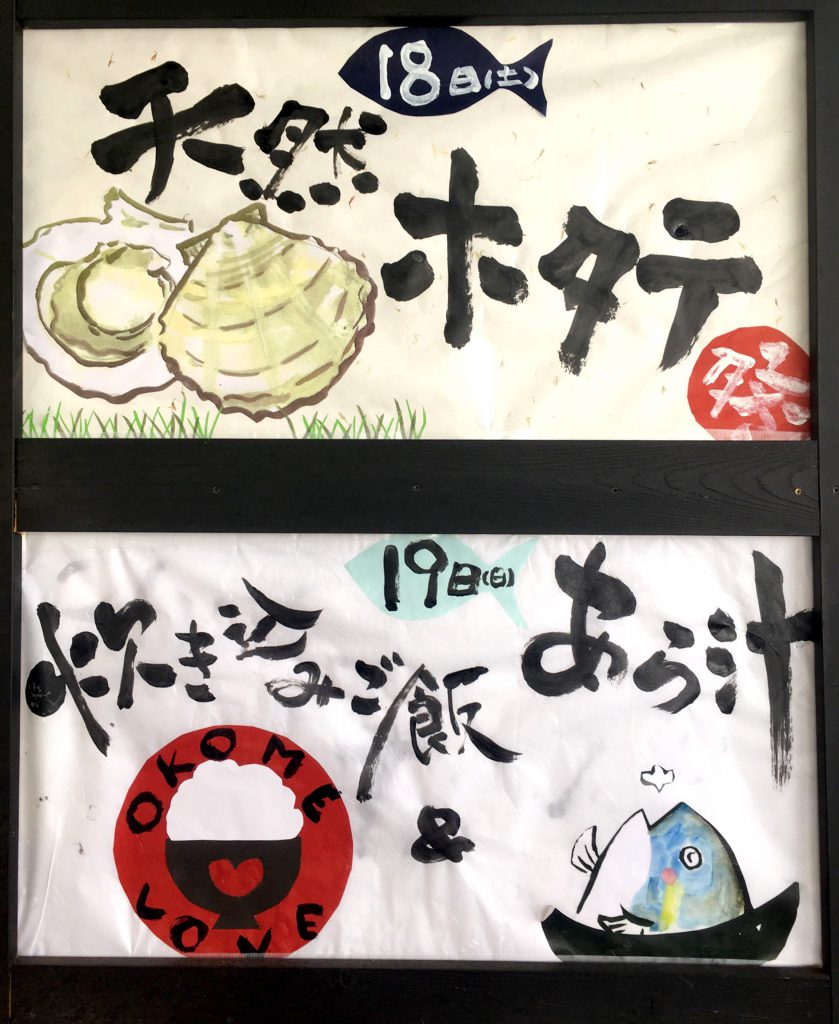 18日(土)
天然
ホタテ
祭
19日(日)
炊き込みご飯
&
あら汁
OKOME
LOVE